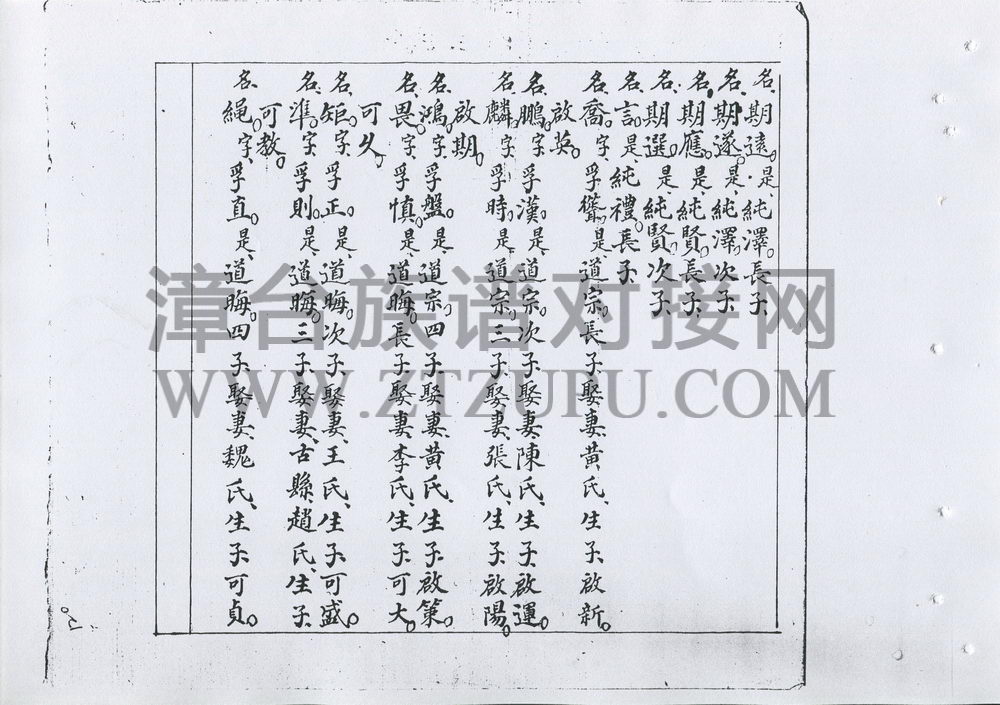 名、期遠。是、純澤長子、
名、期遂。是、純澤、次子、
名、期應。是、純賢、長子、
名、期選。是純賢、次子、
名、言。是、純禮長子、
名、喬。字、孚聳。是、道宗、長子、娶妻、黃氏、生子、啟新。
啟英。
名、鵬。字、孚漢。是、道宗、次子、娶妻、陳氏、生子、啟運。
名、麟。字、孚時。是、道宗、三子、娶妻、張氏、生子、啟陽。
啟期。
名、鴻。字、孚盤。是、道宗、四子、娶妻、黃氏、生子、啟策。
名、畏。字、孚慎。是、道晦、長子、娶妻、李氏、生子、可大。
可久、
名、矩。字、孚正。是、道晦、次子、娶妻、王氏、生子、可盛。
名、準。字、孚則。是、道晦、三子、娶妻、古縣、趙氏、生子、
可教。
名、繩。字、孚直。是、道晦、四子、娶妻、魏氏、生子、可貞。
漳台族谱对接网
WWW.ZTZUPU.COM